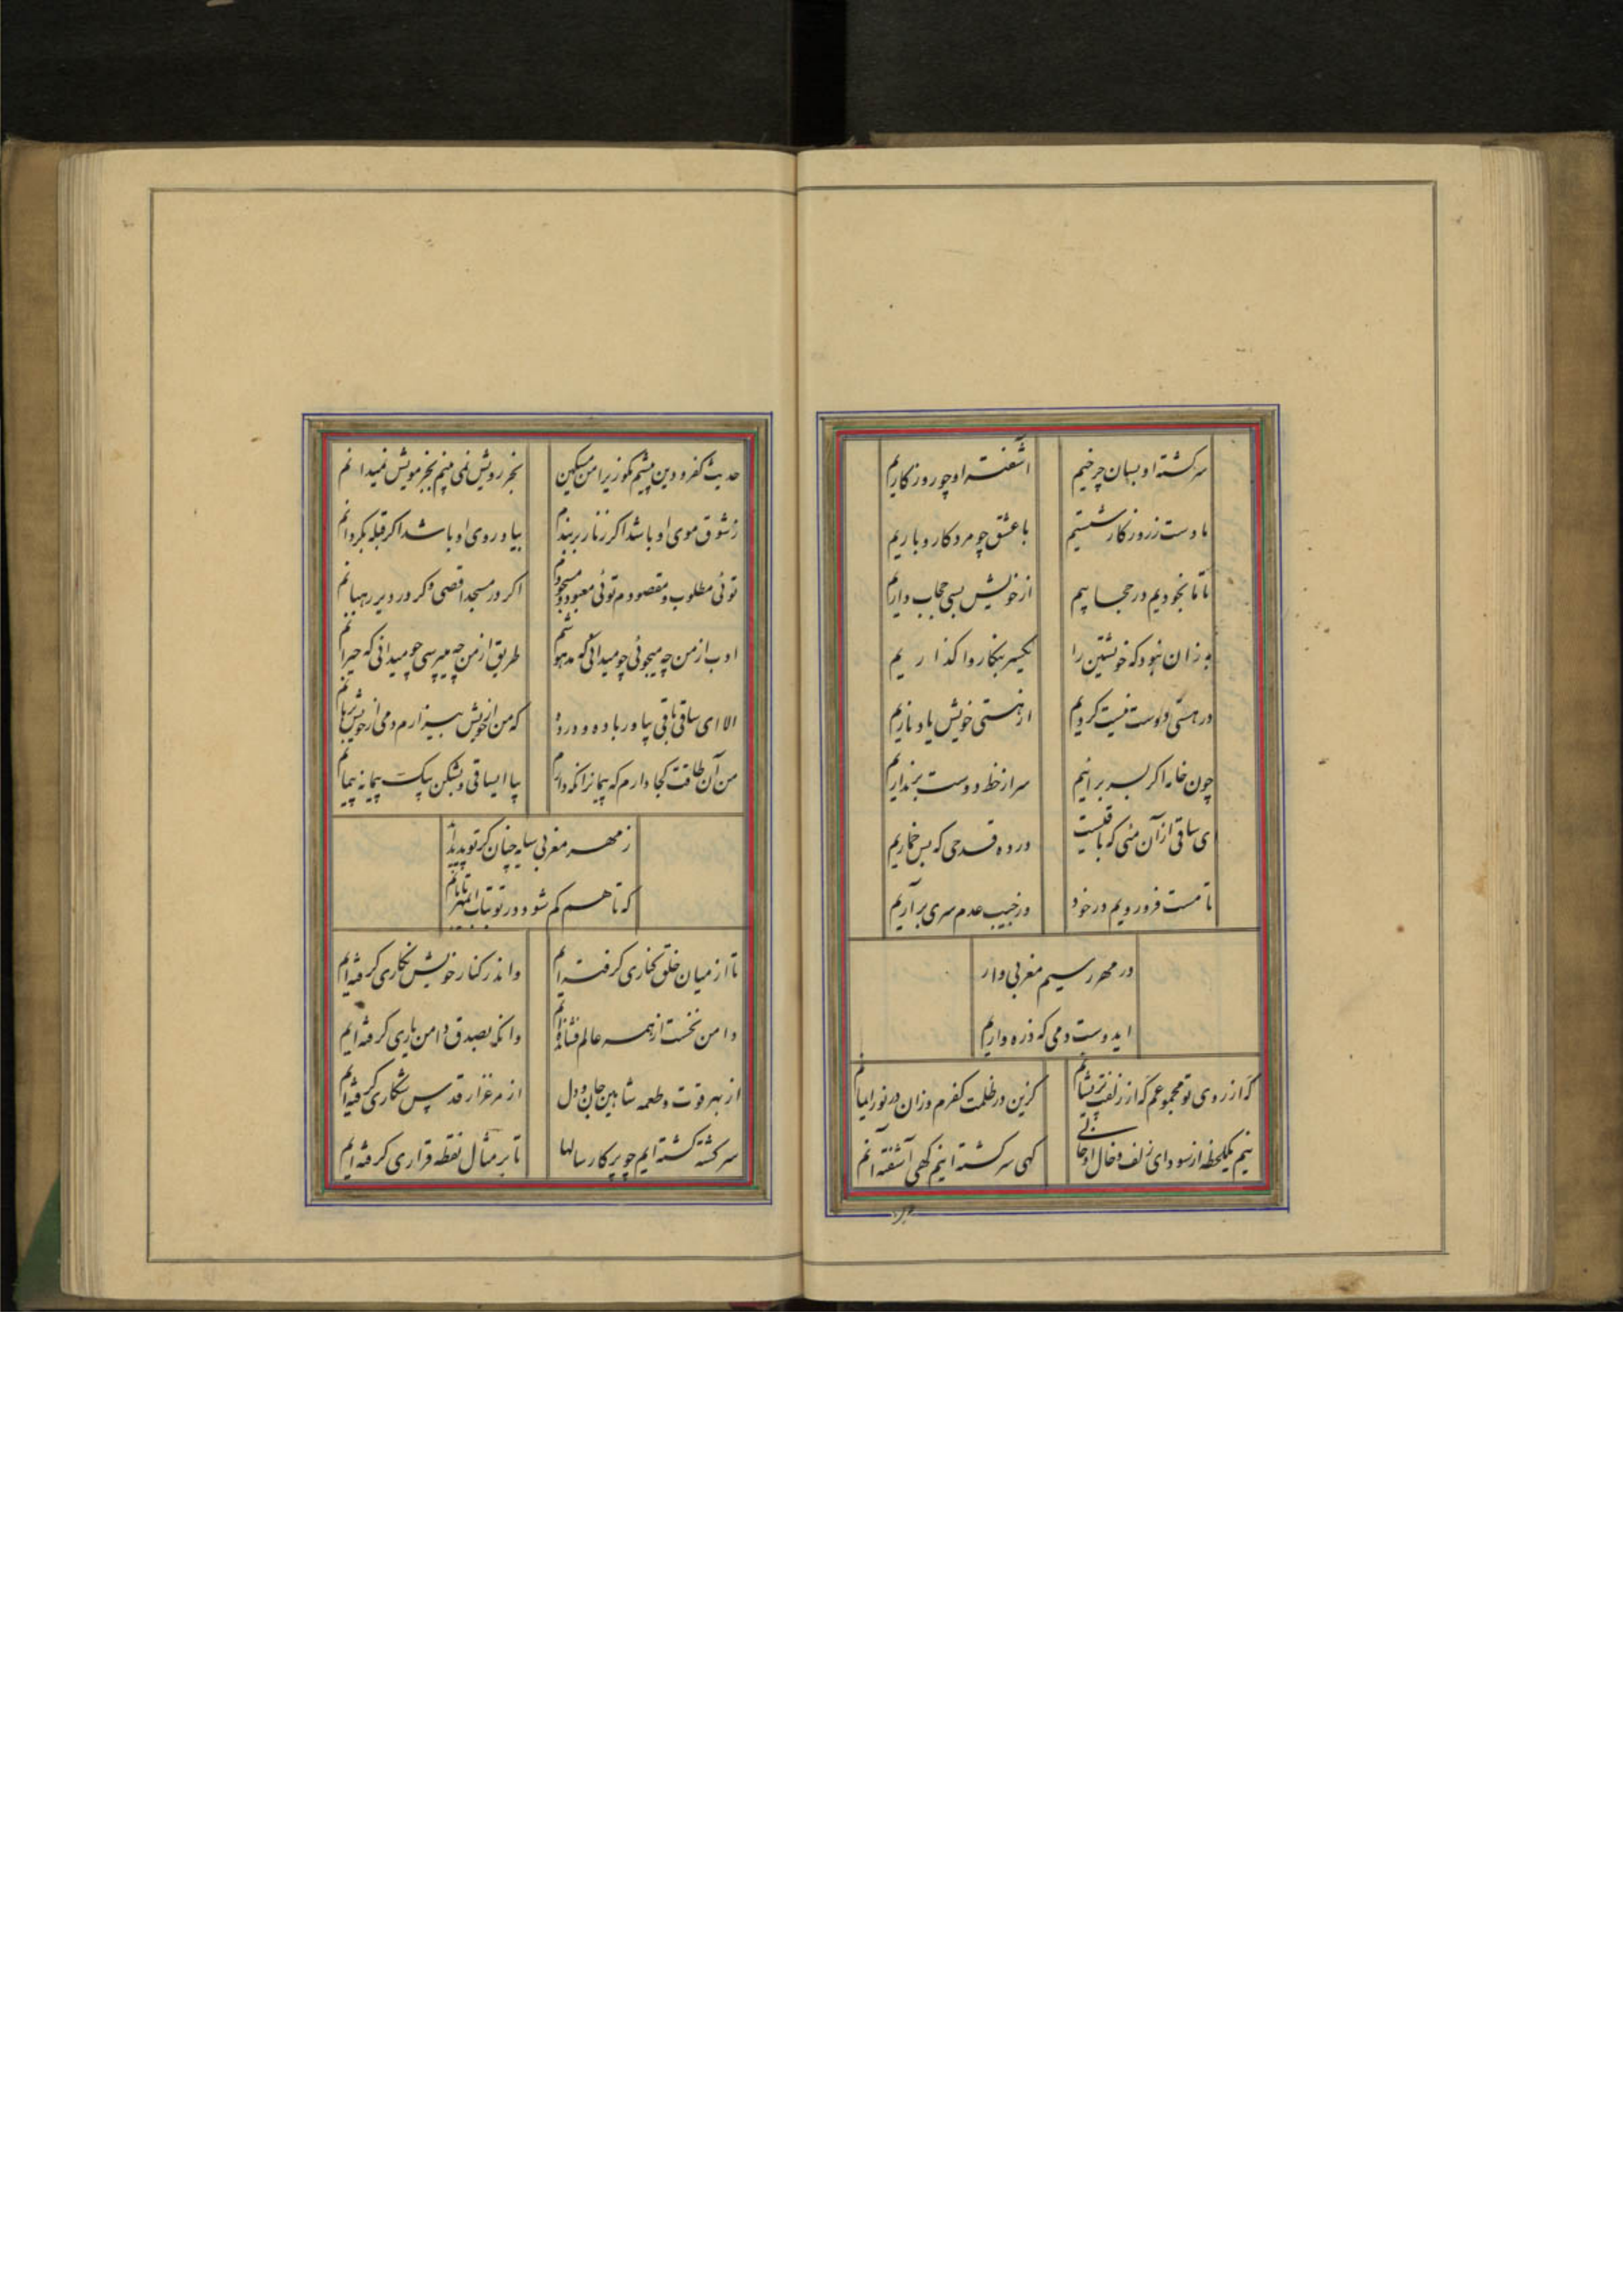 سرگشته او بسان چرخیم
آشفته او چو روزگاریم
ما دست ز روزگار شستیم
با عشق چو مرد کار و باریم
تا ما بخودیم در حجابیم
از خویش بسی حجاب داریم
به زان نبود که خویشتن را
یکسر بنگار واگذاریم
در هستی دوست نیست گردیم
از هستی خویش یاد ناریم
چون خامه اگر بسر برانیم
سر از خط دوست برنداریم
ای ساقی از آن مئی که باقیست
در ده قدحی که بس خماریم
تا مست فرو رویم در خود
در جیب عدم سری برآریم
در مهر رسیم مغربی وار
ایدوست دمی که ذره واریم
گه از روی تو مجموعم گه از زلفت پریشانم
کزین در ظلمت کفرم وزان در نور ایمانم
نیم یکلحظه از سودای زلف و خال او خالی
گهی سرگشته اینم گهی آشفته آنم
حدیث کفر و دین پیشم مگو زیرا من مسکین
بجز رویش نمی بینم بجز مویش نمیدانم
ز شوق موی او باشد اگر زنار بربندم
بیاد روی او باشد اگر قبله بگردانم
توئی مطلوب و مقصودم توئی معبود و مسجودم
اگر در مسجد اقصی و گر در دیر رهبانم
ادب از من چه میجوئی چو میدانی که مدهوشم
طریق از من چه میپرسی چو میدانی که حیرانم
الا ای ساقی باقی بیاور باده و درده
که من از خویش بیزارم دمی از خویش برهانم
من آن طاقت کجا دارم که پیمانرا نگه دارم
بیا ایساقی و بشکن بیک پیمانه پیمانم
ز مهر مغربی سایه چنان گر تو پدید آید
که تا هم گم شود در تو بتاب
تا از میان خلق کناری گرفته ایم
واندر کنار خویش نگاری گرفته ایم
دامن نخست از همه عالم فشانده ایم
وانگه بصدق دامن یاری گرفته ایم
از بهر قوت و طعمه شاهین جان و دل
از مرغزار قدس شکاری گرفته ایم
سرگشته گشته ایم چو پرگار سالها
تا بر مثال نقطه قراری گرفته ایم